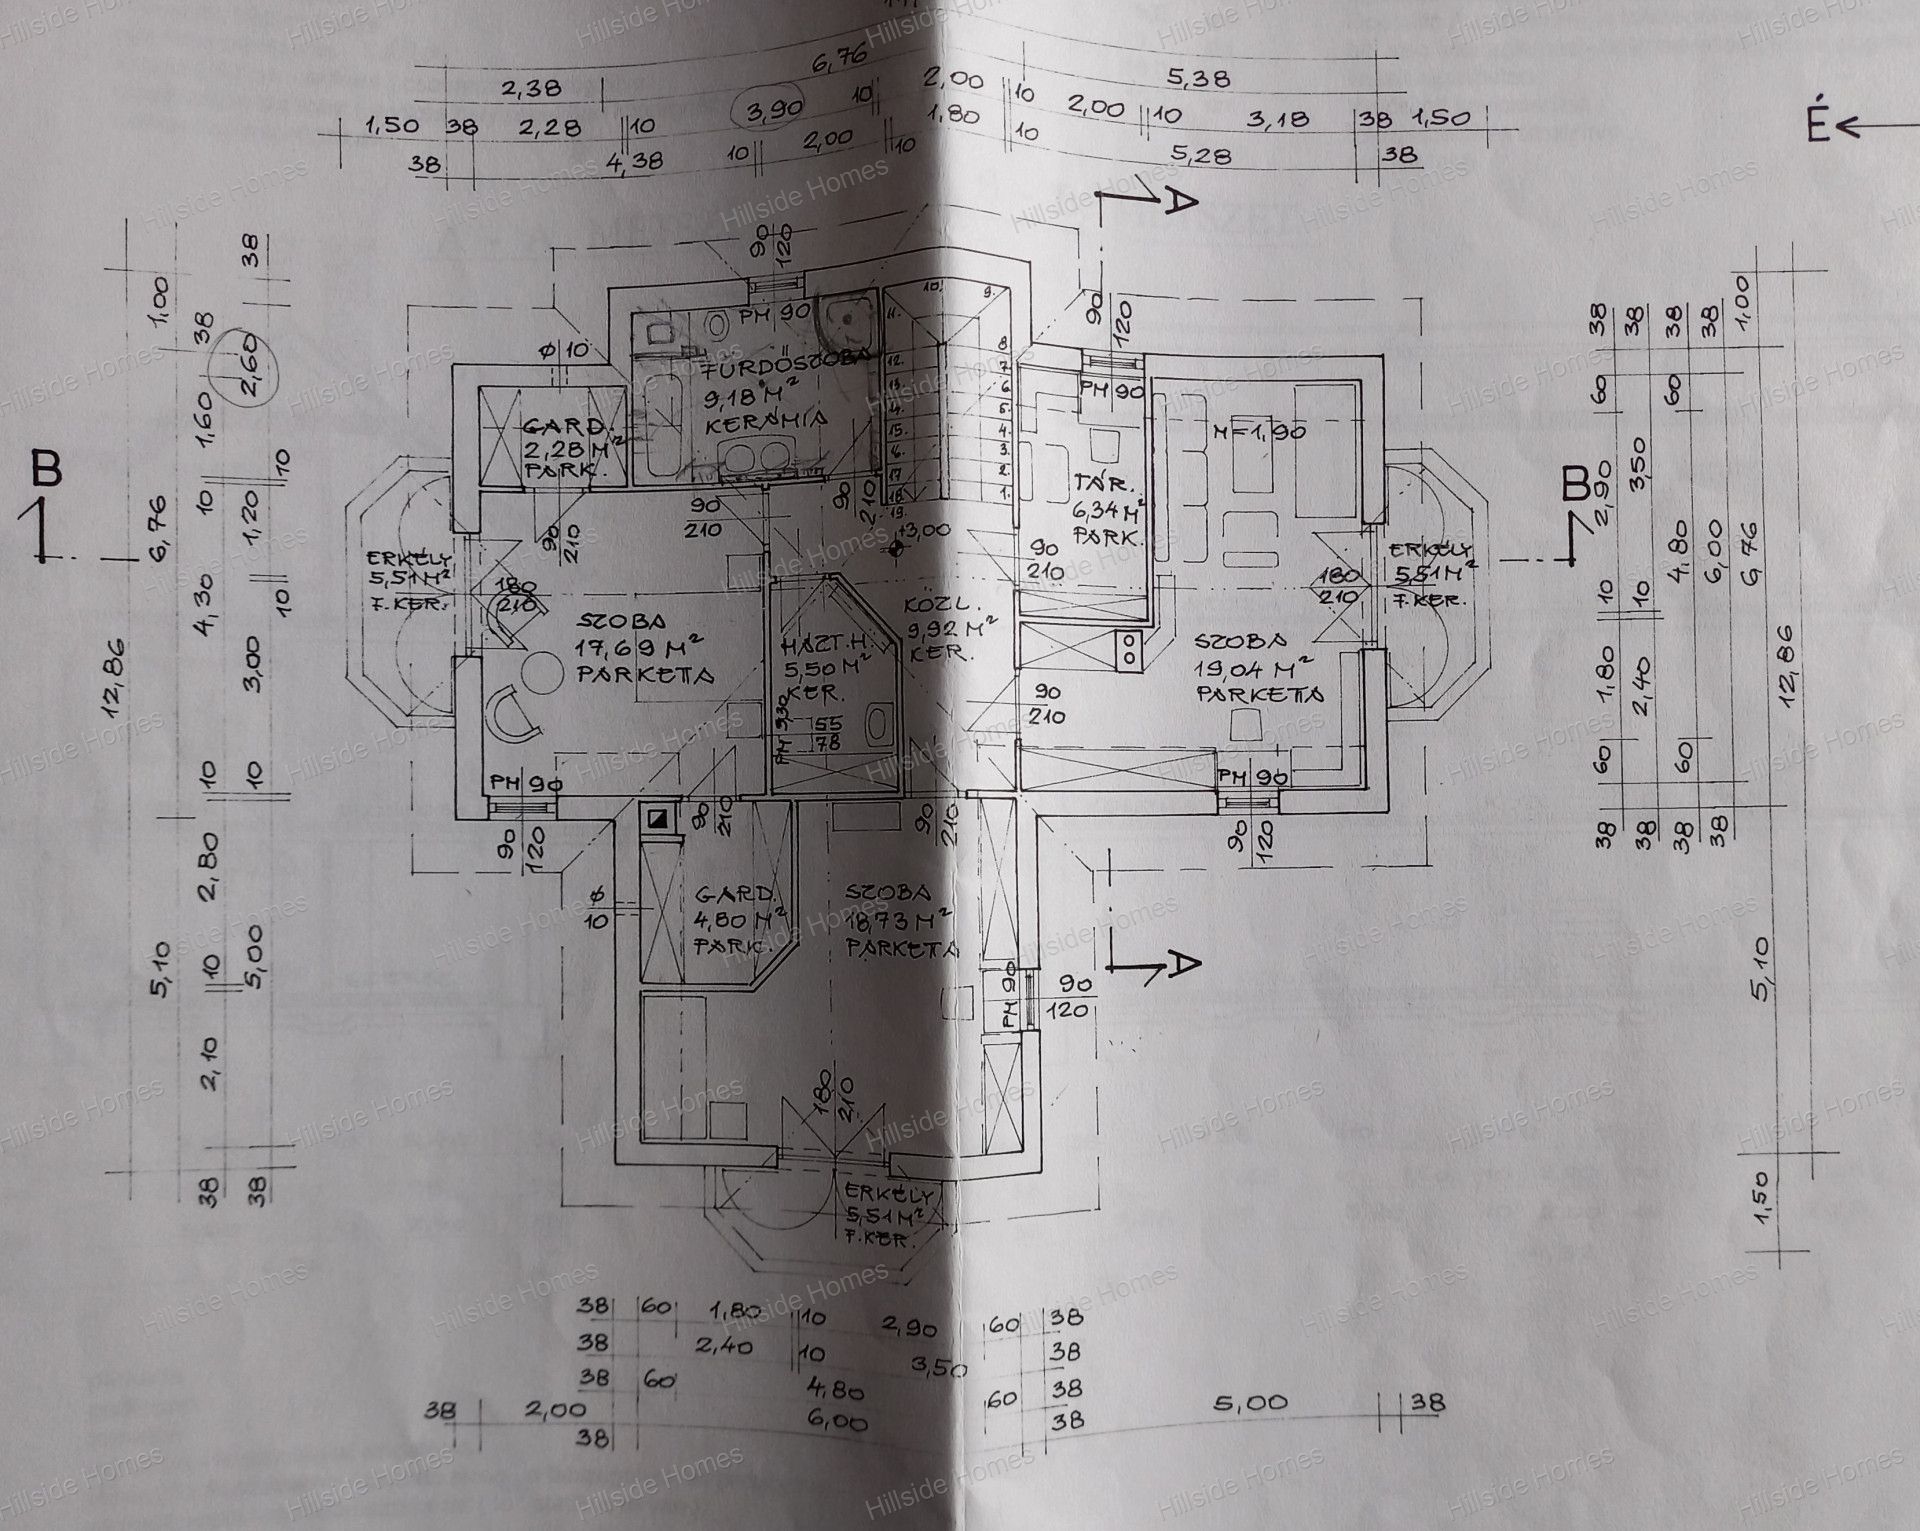 6,76
2,38
2,00
5,38
1,50 38 2,28 10 3,90 10 1,80 10 2,00 10 3,18 38 1,50
38 4,38 10 2,00 10 10 5,28 38
É
A
A
B
B
90
120
PM 90
FÜRDŐSZOBA
9,18 M²
KERÁMIA
ϕ 10
GARD.
2,28 M²
PARK.
90
210
90
210
90
210
10.
9.
11.
8
12.
7
13.
6.
14.
5.
15.
4.
6.
3.
17
2.
18
1.
19.
+3,00
90
120
PM 90
TÁR.
6,34 M²
PARK.
M=1,90
90
210
ERKÉLY
5,51 M²
F. KER.
180
210
SZOBA
17,69 M²
PARKETTA
PM 90
90
120
HÁZT. H.
5,50 M²
KER.
55
78
KÖZL.
9,92 M²
KER.
90
210
SZOBA
19,04 M²
PARKETTA
180
210
ERKÉLY
5,51 M²
F. KER.
PM 90
90
120
90
210
90
210
ϕ
10
GARD.
4,80 M²
PARK.
SZOBA
18,73 M²
PARKETTA
PM 90
90
120
180
210
ERKÉLY
5,51 M²
F. KER.
12,86
1,00
6,76
5,10
38
1,60
10
4,30
10
2,80
10
2,10
38
38
2,60
10
1,20
10
3,00
10
5,00
38
38
60
2,90
10
1,80
60
38
38
3,50
10
2,40
38
38
60
4,80
60
38
38
6,00
38
1,00
6,76
5,10
1,50
12,86
38 60 1,80 10 2,90 60 38
38 2,40 10 3,50 38
38 60 4,80 60 38
38 2,00 38 6,00 38 5,00 38
Hillside Homes